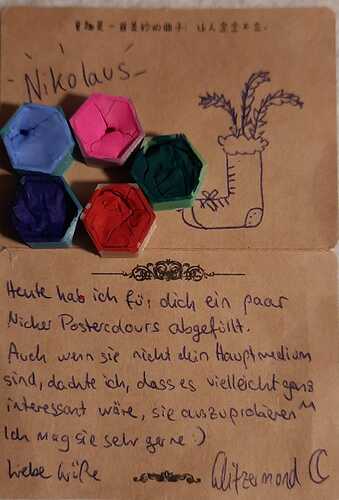 Nikolaus
Heute hab ich für dich ein paar
Nicker Postercolours abgefüllt.
Auch wenn sie nicht dein Hauptmedium
sind, dachte ich, dass es vielleicht ganz
interessant wäre, sie auszuprobieren ^^
Ich mag sie sehr gerne :)
Liebe Grüße Glitzermond